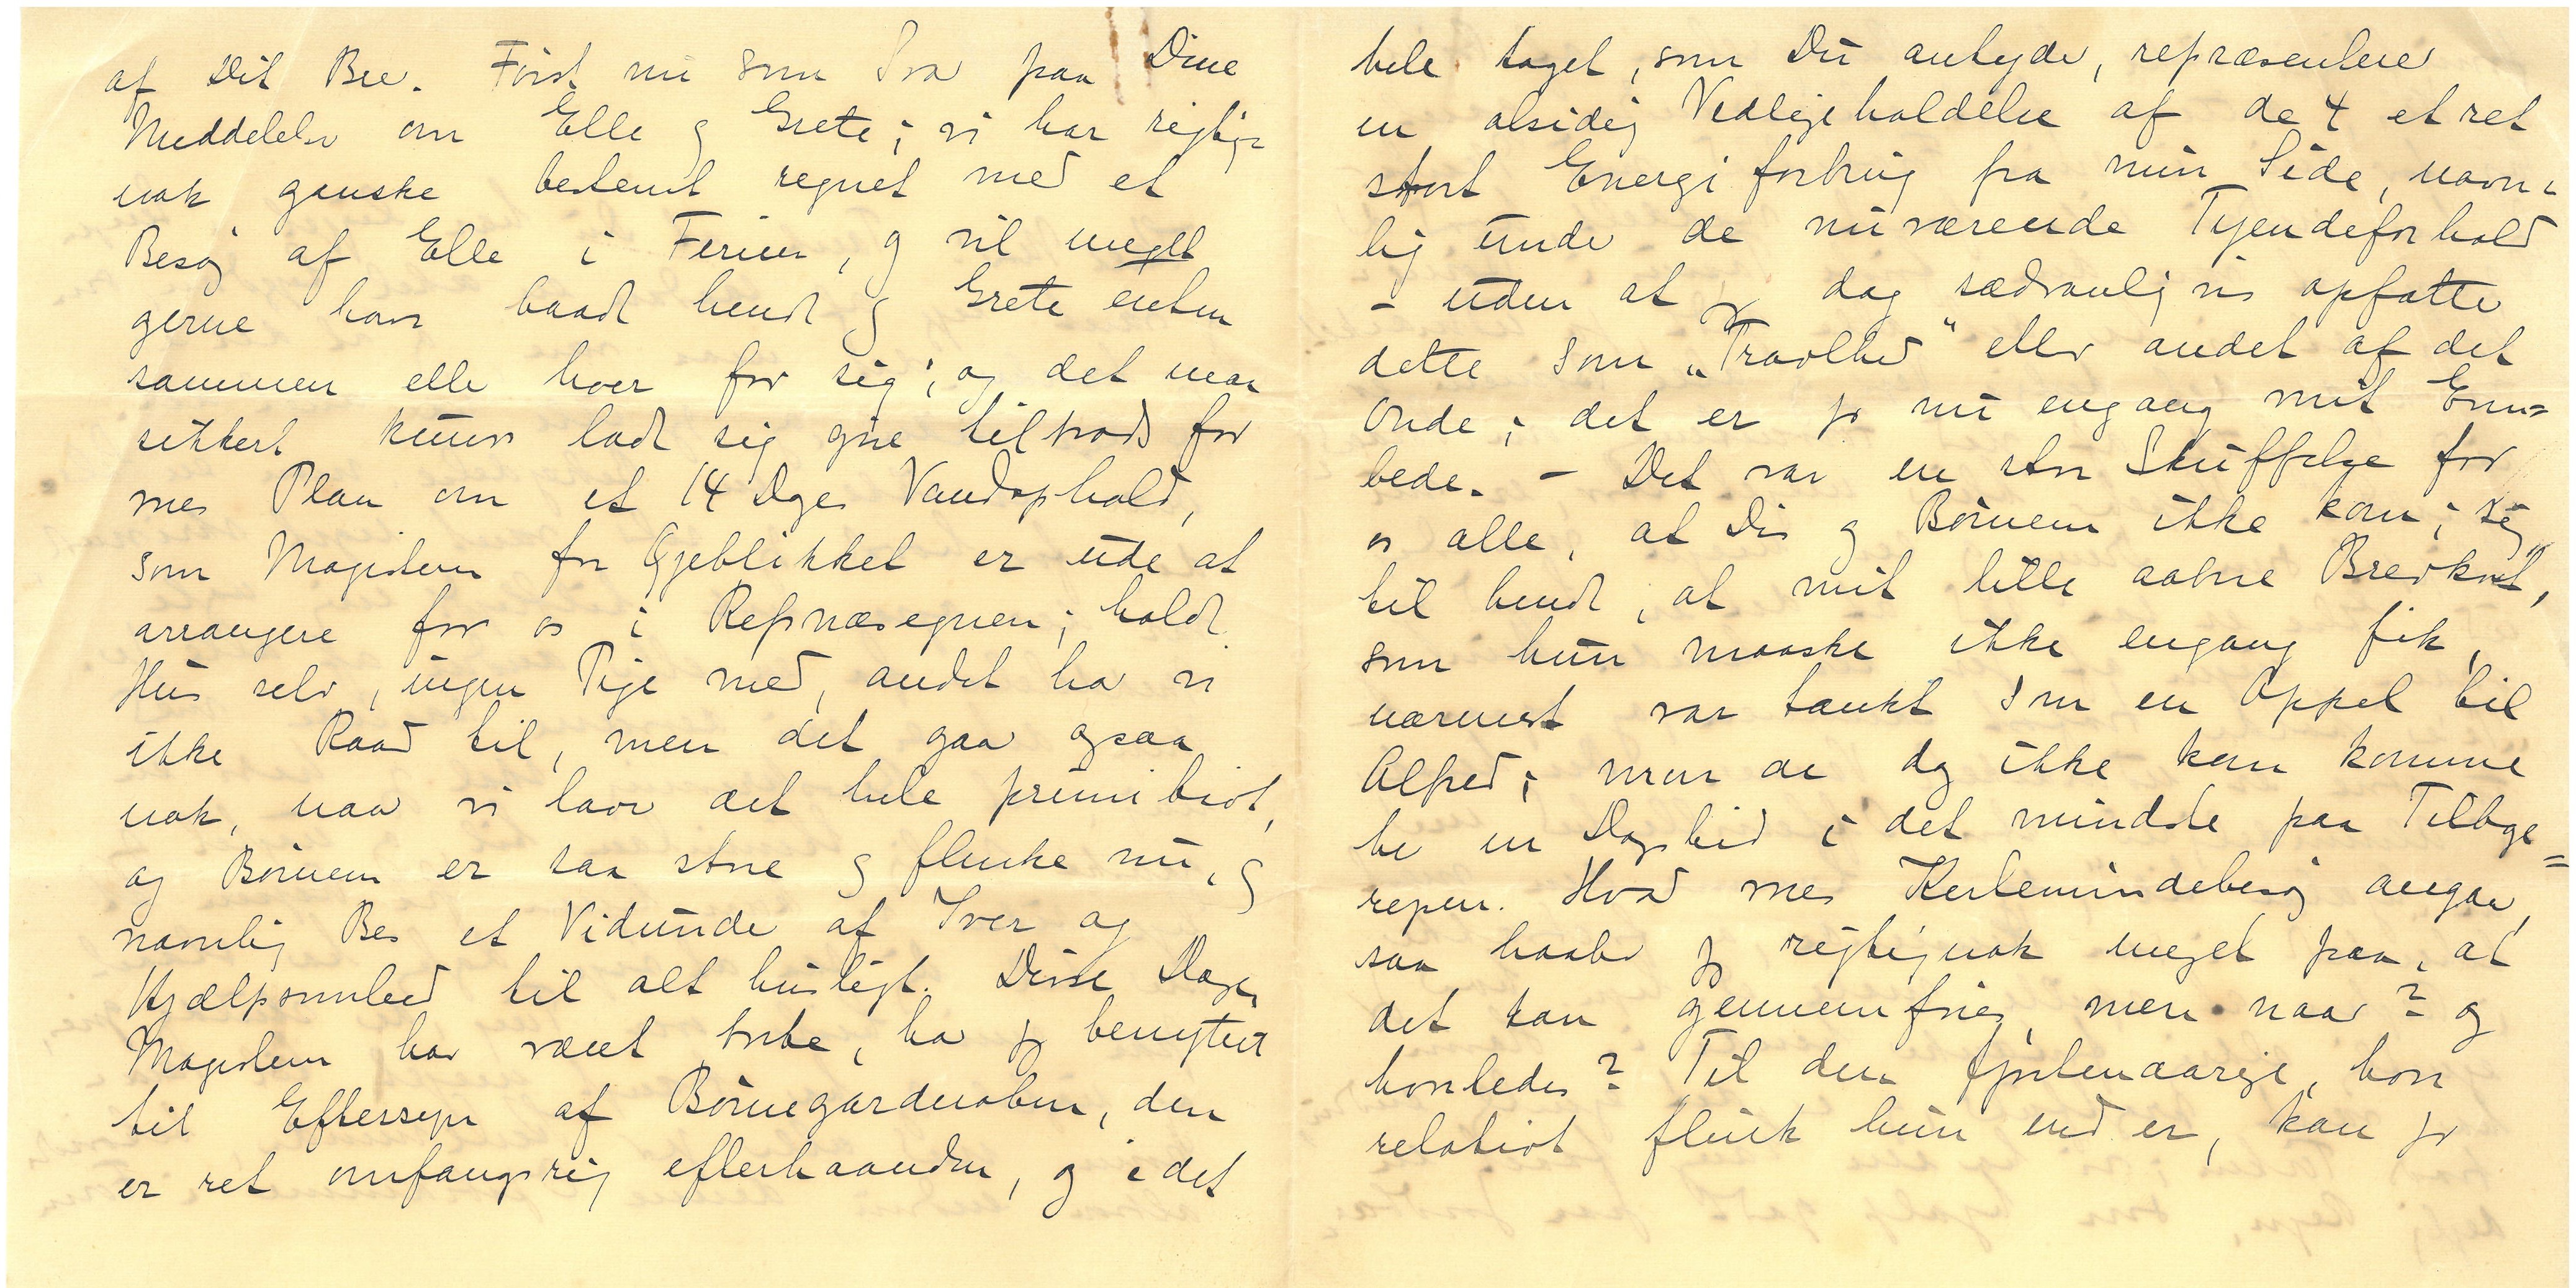 af Dit Brev. Først nu som Svar paa Dine
Meddelelser om Elle og Grete; vi har rigtig=
nok ganske bestemt regnet med et
Besøg af Elle i Ferien, og vil meget
gerne have baade hende og Grete enten
sammen eller hver for sig; og det maa
sikkert kunne lade sig gøre tiltrods for
vores Plan om et 14 Dages Vandophold,
som Magisteren for Øjeblikket er ude at
arrangere for os i Refsnæsegnen; holde
Hus selv, ingen Pige med, andet har vi
ikke Raad til, men det gaar ogsaa
nok, naar vi laver det hele primitivt,
og Børnene er saa store og flinke nu, og
navnlig Bes et Vidunder af Iver og
Hjælpsomhed til alt husligt. Disse Dage,
Magisteren har været borte, har jeg benyttet
til Eftersyn af Børnegarderoben, den
er ret omfangsrig efterhaanden, og i det
hele taget, som Du antyder, repræsenterer
en alsidig Vedligeholdelse af de 4 et ret
stort Energiforbrug fra min Side, navn=
lig under de nuværende Tyendeforhold
- uden at jeg dog sædvanligvis opfatter
dette som „Travlhed" eller andet af det
Onde; det er jo nu engang mit Em=
bede. - Det var en stor Skuffelse for
os alle, at Dis og Børnene ikke kom; sig
til hende, at mit lille aabne Brevkort,
som hun maaske ikke engang fik,
nærmest var tænkt som en Appel til
Alfred; mon de dog ikke kan komme
her en Dagstid i det mindste paa Tilbage=
rejsen. Hvad vores Kerteminde besøg angaar,
saa haaber jeg rigtignok meget paa, at
det kan gennemføres, men naar? og
hvorledes? Til den fjortenaarige, hvor
relativt flink hun end er, kan jeg